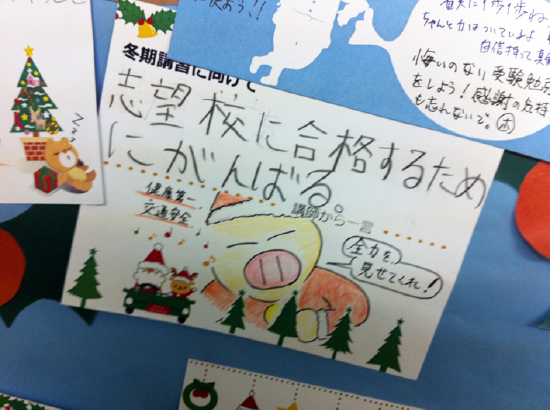 冬期講習に向けて
志望校に合格するため
にがんばる。
健康第一
交通安全
講師から一言
全力を、
見せてくれ!
ちゃんと力はついているよ
自信持って
悔いのない受験勉強
をしよう!感謝の気持
も忘れないで。